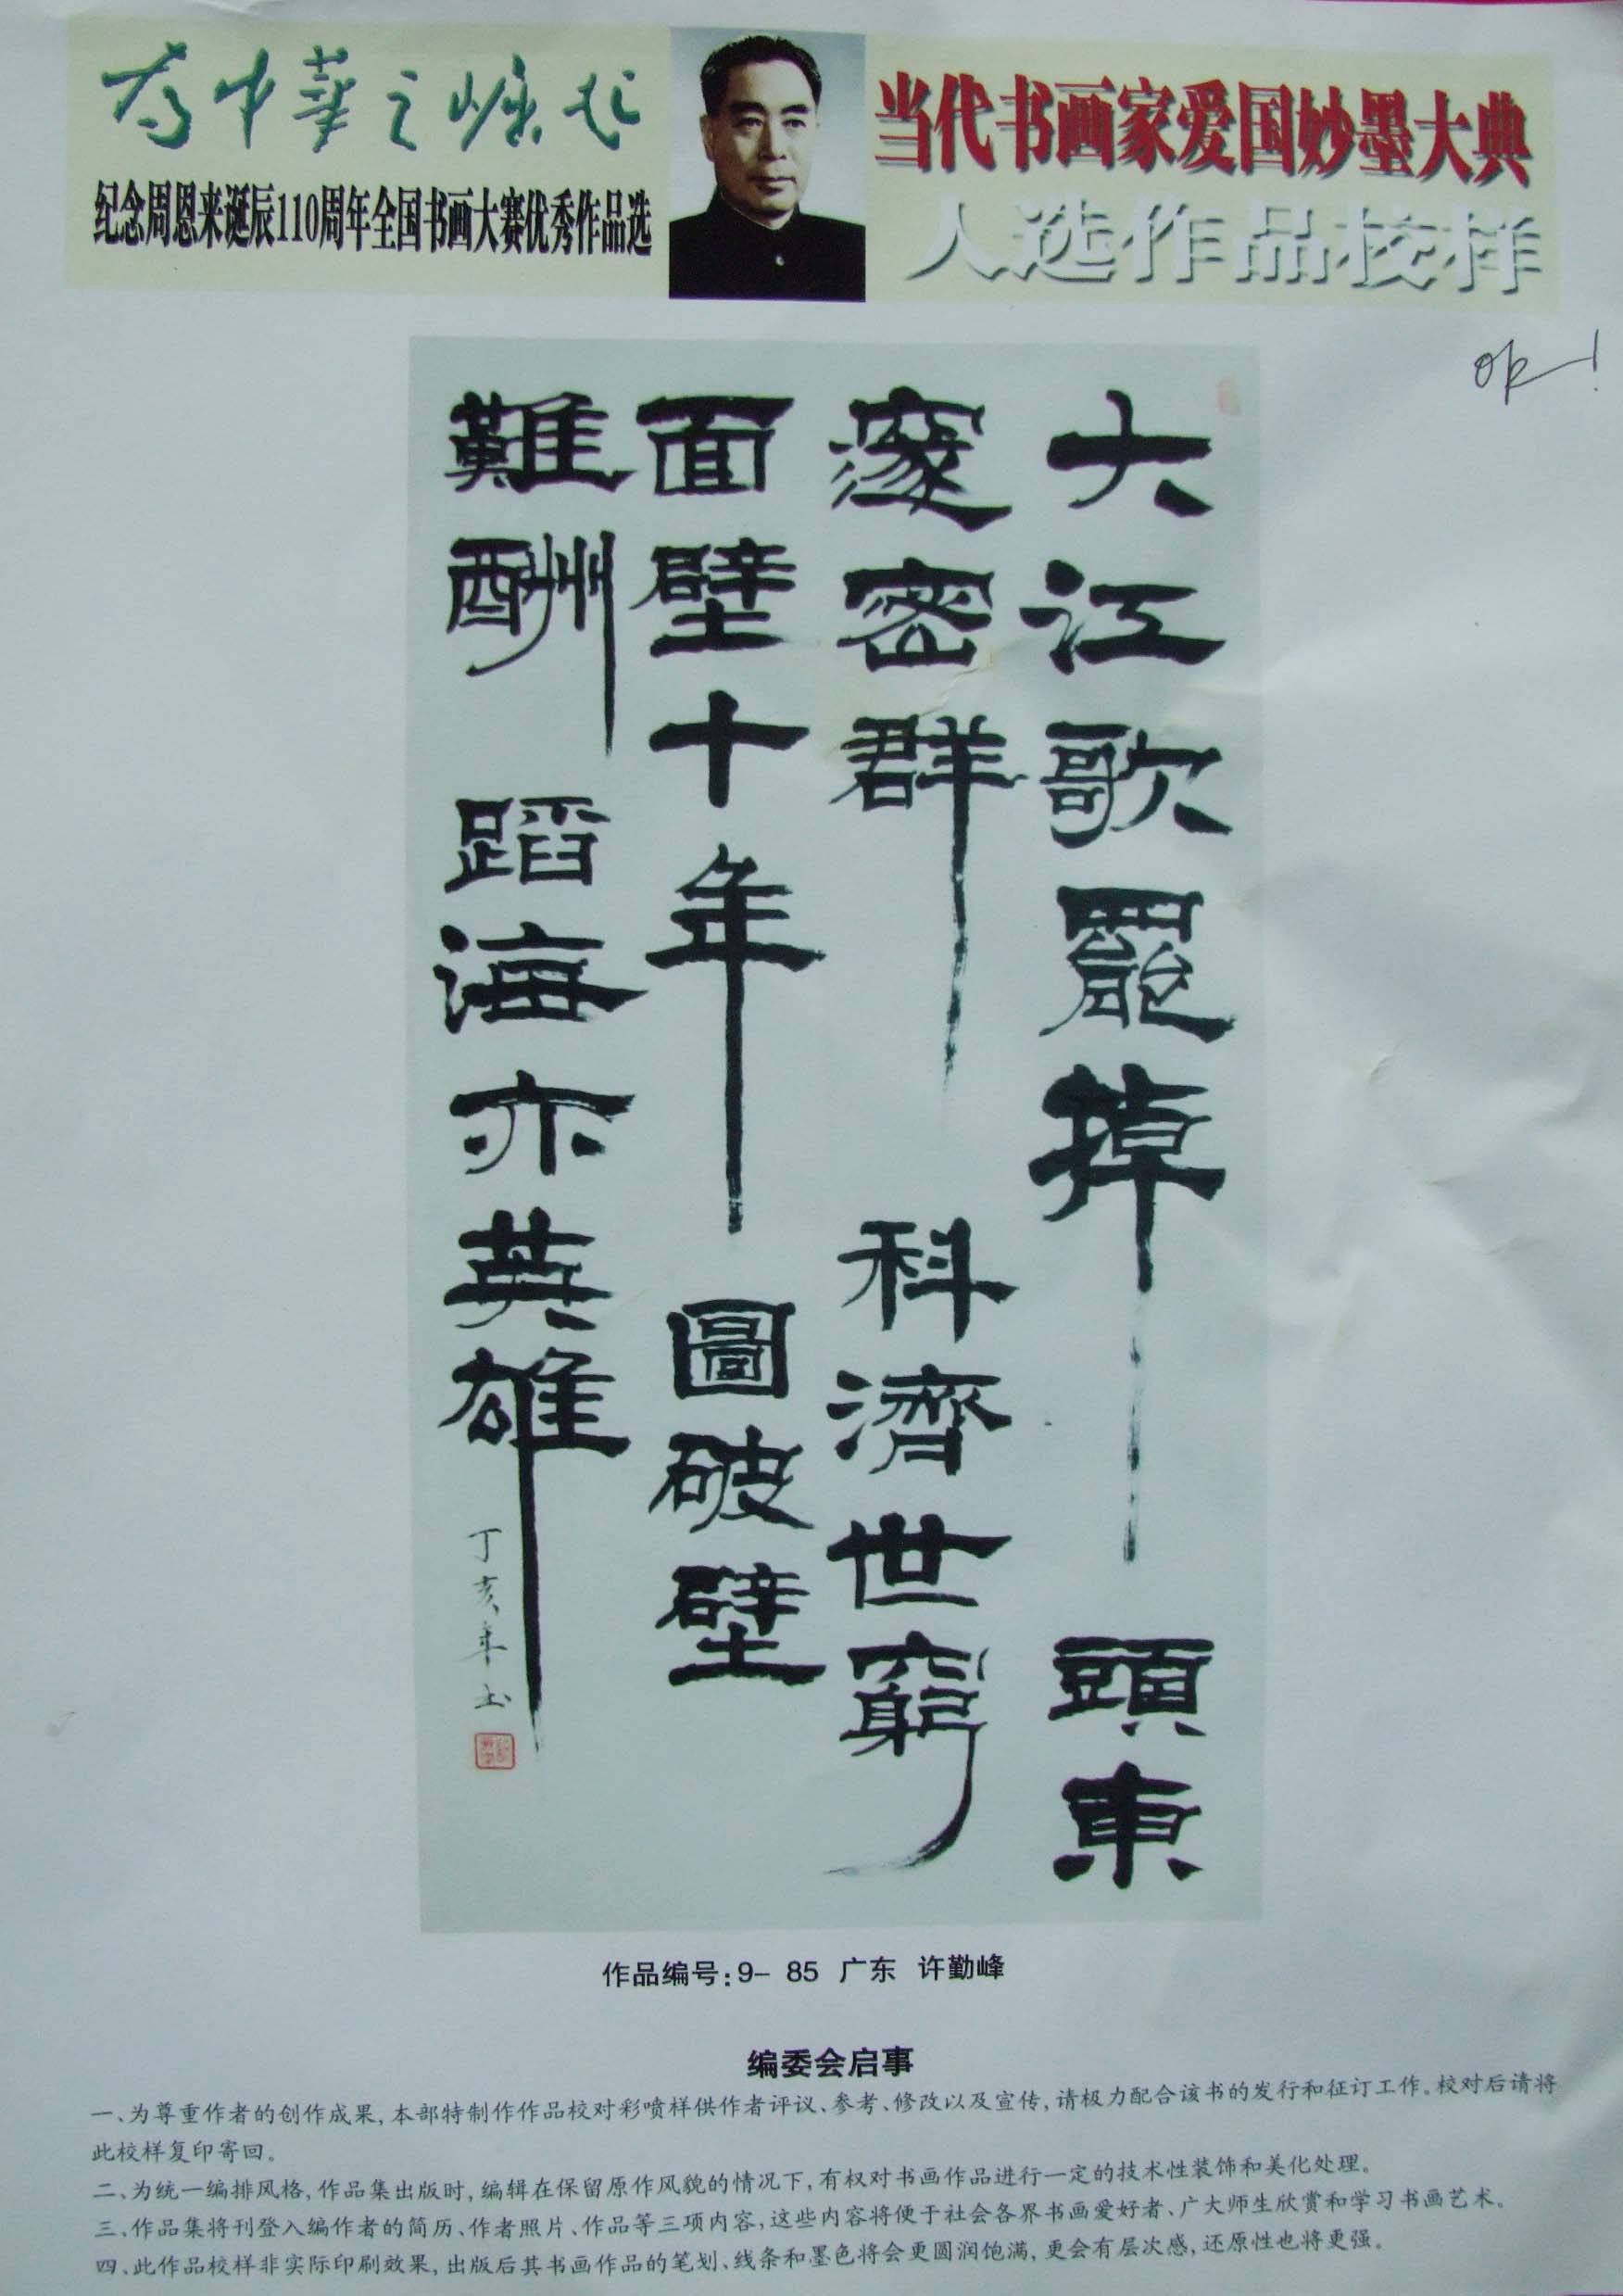 为中華之崛起
纪念周恩来诞辰110周年全国书画大赛优秀作品选
当代书画家爱国妙墨大典
入选作品校样
ok!
大江歌罷掉頭東
邃密群科濟世窮
面壁十年圖破壁
難酬蹈海亦英雄
丁亥年书
作品编号:9- 85 广东 许勤峰
编委会启事
一、为尊重作者的创作成果,本部特制作作品校对彩喷样供作者评议、参考、修改以及宣传,请极力配合该书的发行和征订工作。校对后请将
此校样复印寄回。
二、为统一编排风格,作品集出版时,编辑在保留原作风貌的情况下,有权对书画作品进行一定的技术性装饰和美化处理。
三、作品集将刊登入编作者的简历、作者照片、作品等三项内容,这些内容将便于社会各界书画爱好者、广大师生欣赏和学习书画艺术。
四、此作品校样非实际印刷效果,出版后其书画作品的笔划、线条和墨色将会更圆润饱满,更会有层次感,还原性也将更强。